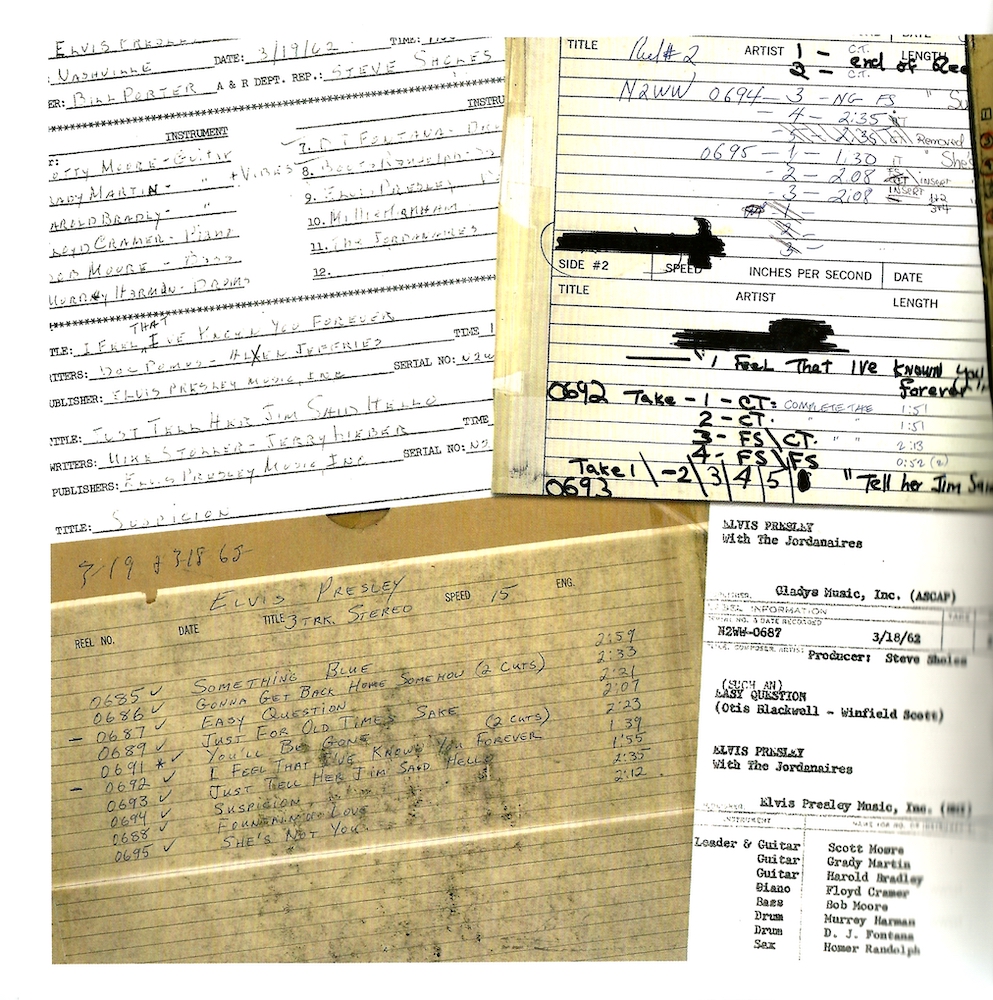 ELVIS PRESLEY
NASHVILLE DATE: 3/19/62 TIME:
ER: BILL PORTER A & R DEPT. REP.: STEVE SHOLES
INSTRUMENT INSTRU
OTTY MOORE - GUITAR
ADY MARTIN - " + VIBES
AROLD BRADLY - "
LOYD CRAMER - PIANO
OB MOORE - BASS
MURREY HARMAN - DRUMS
7. D J FONTANA - DRU
8. BOOTS RANDOLPH -
9. ELVIS PRESLEY
10. MILLIE KIRKHAM
11. THE JORDANAIRES
12.
TLE: I FEEL THAT I'VE KNOWN YOU FOREVER TIME 1
ITERS: DOC POMUS - ALLEN JEFFERIES
UBLISHER: ELVIS PRESLEY MUSIC, INC SERIAL NO: N2W
TITLE: JUST TELL HER JIM SAID HELLO TIME
WRITERS: MIKE STOLLER - JERRY LIEBER
PUBLISHERS: ELVIS PRESLEY MUSIC, INC SERIAL NO: N2
TITLE: SUSPICION
TITLE Reel # 2 ARTIST 1 - C.T. LENGTH
2 - C.T. end of Ree
N2WW 0694 - 3 - NG FS " Su
- 4 - 2:35 IT
- 5 - 2:35 Removed
0695 - 1 - 1:30 " She's
- 2 - 2:08 insert
- 3 - 2:08 INSERT 1+2
3+4
- 1 -
2
3
SIDE #2 SPEED INCHES PER SECOND DATE
TITLE ARTIST LENGTH
"I Feel That I've KNOWN You
Forever"
0692 Take - 1 - CT: COMPLETE TAKE 1:51
2 - CT. " " 1:51
3 - FS\CT. " " 2:13
4 - FS\FS 0:52 (2)
Take 1 \ -2 | 3 | 4 | 5 | "Tell her Jim Said
0693
3-19 & 3-18 65
ELVIS PRESLEY
REEL NO. DATE TITLE 3 TRK. STEREO SPEED 15 ENG.
0685 ✓ SOMETHING BLUE 2:59
0686 ✓ GONNA GET BACK HOME SOMEHOW (2 CUTS) 2:33
- 0687 ✓ EASY QUESTION 2:21
0689 ✓ JUST FOR OLD TIMES SAKE 2:07
0691 * ✓ YOU'LL BE GONE (2 CUTS) 2:23
- 0692 ✓ I FEEL THAT I'VE KNOWN YOU FOREVER 1:39
0693 ✓ JUST TELL HER JIM SAID HELLO 1:55
0694 ✓ SUSPICION 2:35
0688 ✓ FOUNTAIN OF LOVE 2:12
0695 ✓ SHE'S NOT YOU
ELVIS PRESLEY
With The Jordanaires
Gladys Music, Inc. (ASCAP)
LABEL INFORMATION
SERIAL NO. & DATE RECORDED
N2WW-0687 3/18/62
Producer: Steve Sholes
(SUCH AN)
EASY QUESTION
(Otis Blackwell - Winfield Scott)
ELVIS PRESLEY
With The Jordanaires
Elvis Presley Music, Inc. (BMI)
INSTRUMENT
Leader & Guitar Scott Moore
Guitar Grady Martin
Guitar Harold Bradley
Piano Floyd Cramer
Bass Bob Moore
Drum Murrey Harman
Drum D. J. Fontana
Sax Homer Randolph